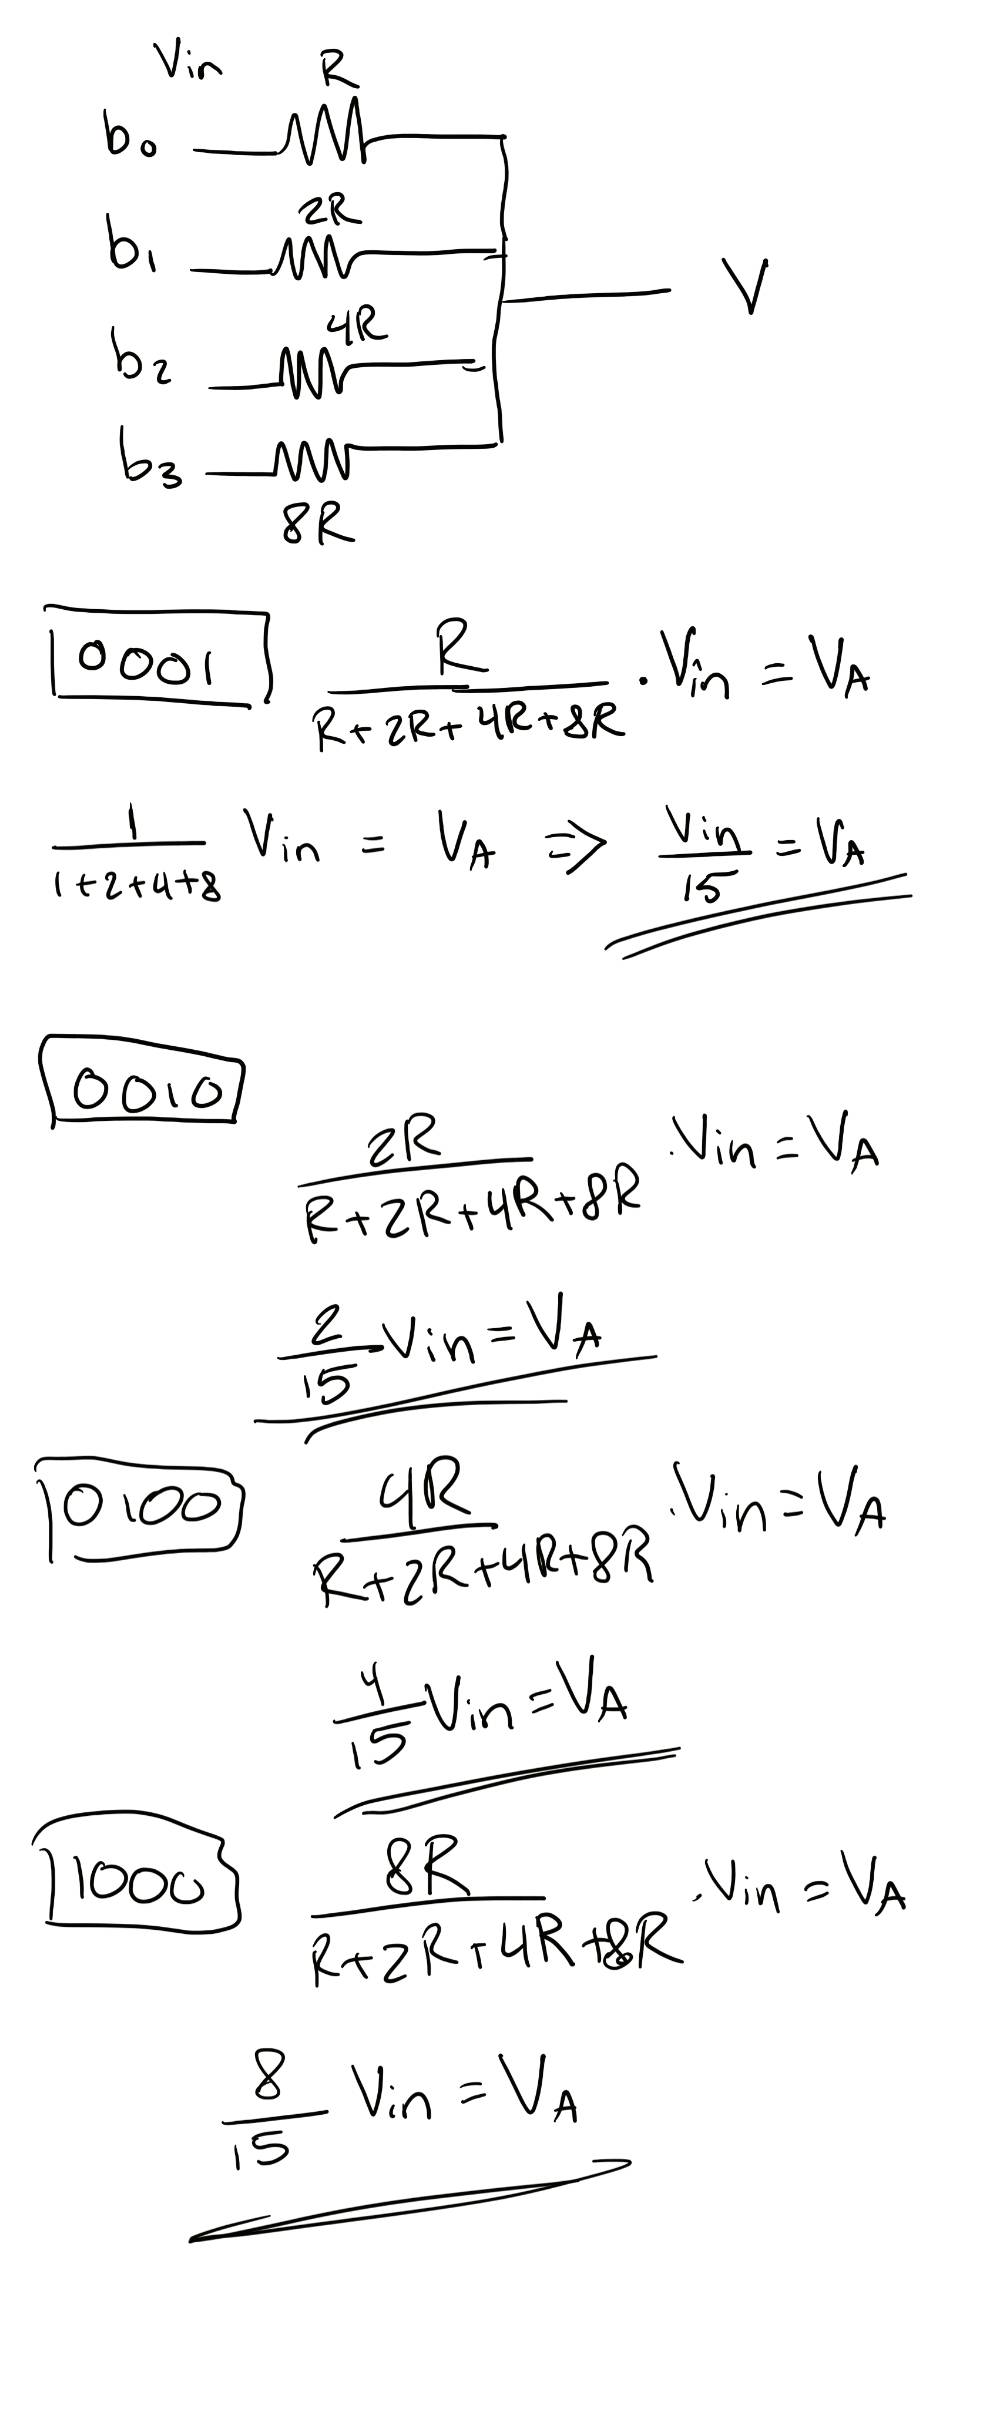 Vin R
b0
2R
b1
V
4R
b2
b3
8R
0001 R / (R+2R+4R+8R) · Vin = VA
1 / (1+2+4+8) Vin = VA ⇒ Vin / 15 = VA
0010
2R / (R+2R+4R+8R) · Vin = VA
2/15 Vin = VA
0100 4R / (R+2R+4R+8R) · Vin = VA
4/15 Vin = VA
1000 8R / (R+2R+4R+8R) · Vin = VA
8/15 Vin = VA